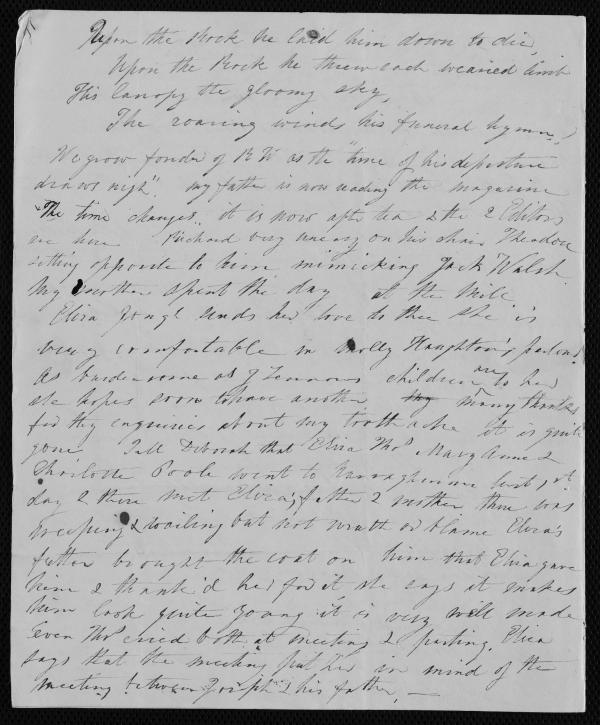 Upon the Rock he laid him down to die,
Upon the Rock he threw each wearied limb
His Canopy the gloomy sky,
The roaring winds his funeral hymn,
We grow fonder of RW as the "time of his departure
draws nigh". my father is now reading the magazine
The time changes. it is now after tea & the 2 Editors
are here Richard very uneasy on his chair Theodore
sitting opposite to him mimicking Jack Walsh.
My brother spent the day at the Mill.
Eliza sends her love to thee she is
very comfortable in Molly Haughton's parlour
As burdensome as children are to her
she hopes soon to have another many thanks
for thy enquiries about my tooth ache it is quite
gone. Tell Deborah that Eliza Thos Mary Anne &
Charlotte Poole went to last 1st
day & there met Eliza's father & mother there was
weeping & wailing but not wrath or blame Eliza's
father brought the coat on him that Eliza gave
him & thank'd her for it, she says it makes
him look quite young it is very well made
Even Thos cried both at meeting & parting. Eliza
says that the meeting put her in mind of the
meeting between Joseph & his father, —